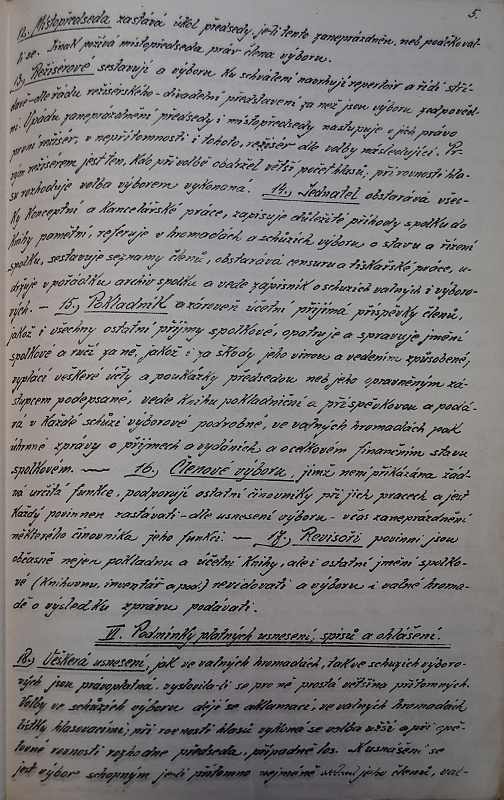 5.
12.) Místopředseda zastává úkol předsedy, je-li tento zaneprázdněn, neb poděkoval-
li se. Jinak požívá místopředseda práv člena výboru.
13.) Režisérové sestavují a výboru ku schválení navrhují repertoir a řídí stří-
davě - dle řádu režisérského - divadelní představení za než jsou výboru zodpověd-
ni. V padu zaneprázdnění předsedy i místopředsedy nastupuje v jich právo
první režisér, v nepřítomnosti i tohoto, režisér dle volby následující. Pr-
vým režisérem jest ten, kdo při volbě obdržel větší počet hlasů, při rovnosti hla-
sů rozhoduje volba výborem vykonaná. 14.) Jednatel obstarává všec-
ky konceptní a kancelářské práce, zapisuje důležité příhody spolku do
knihy pamětní, referuje v hromadách a schůzích výboru o stavu a řízení
spolku, sestavuje seznamy členů, obstarává censuru a tiskařské práce, u-
držuje v pořádku archiv spolku a vede zápisník o schůzích valných i výboro-
vých. — 15.) Pokladník a zároveň účetní přijímá příspěvky členů,
jakož i všechny ostatní příjmy spolkové, opatruje a spravuje jmění
spolkové a ručí za ně, jakož i za škody jeho vinou a vedením způsobené,
vyplácí veškeré účty a poukázky předsedou neb jeho oprávněným zá-
stupcem podepsané, vede knihu pokladniční a příspěvkovou a podá-
vá v každé schůzi výborové podrobné, ve valných hromadách pak
úhrnné zprávy o příjmech a vydáních a o celkovém finančním stavu
spolkovém. — 16.) Členové výboru, jimž není přikázána žád-
ná určitá funkce, podporují ostatní činovníky při jich pracech a jest
každý povinnen zastávati - dle usnesení výboru - včas zaneprázdnění
některého činovníka jeho funkci. — 17.) Revisoři povinni jsou
občasně nejen pokladnu a účetní knihy, ale i ostatní jmění spolko-
vé (knihovnu, inventář a pod.) revidovati a výboru i valné hroma-
dě o výsledku zprávu podávati.
VI. Podmínky platných usnesení, spisů a ohlášení.
18.) Věškerá usnesení, jak ve valných hromadách, tak ve schůzích výboro-
vých jsou právoplatná, vyslovila-li se pro ně prostá většina přítomných.
Volby ve schůzích výboru dějí se aklamací, ve valných hromadách
lístky hlasovacími; při rovnosti hlasů vykoná se volba užší a při opě-
tovné rovnosti rozhodne předseda, případně los. K usnášení se
jest výbor schopným je-li přítomno nejméně jeho členů, val-